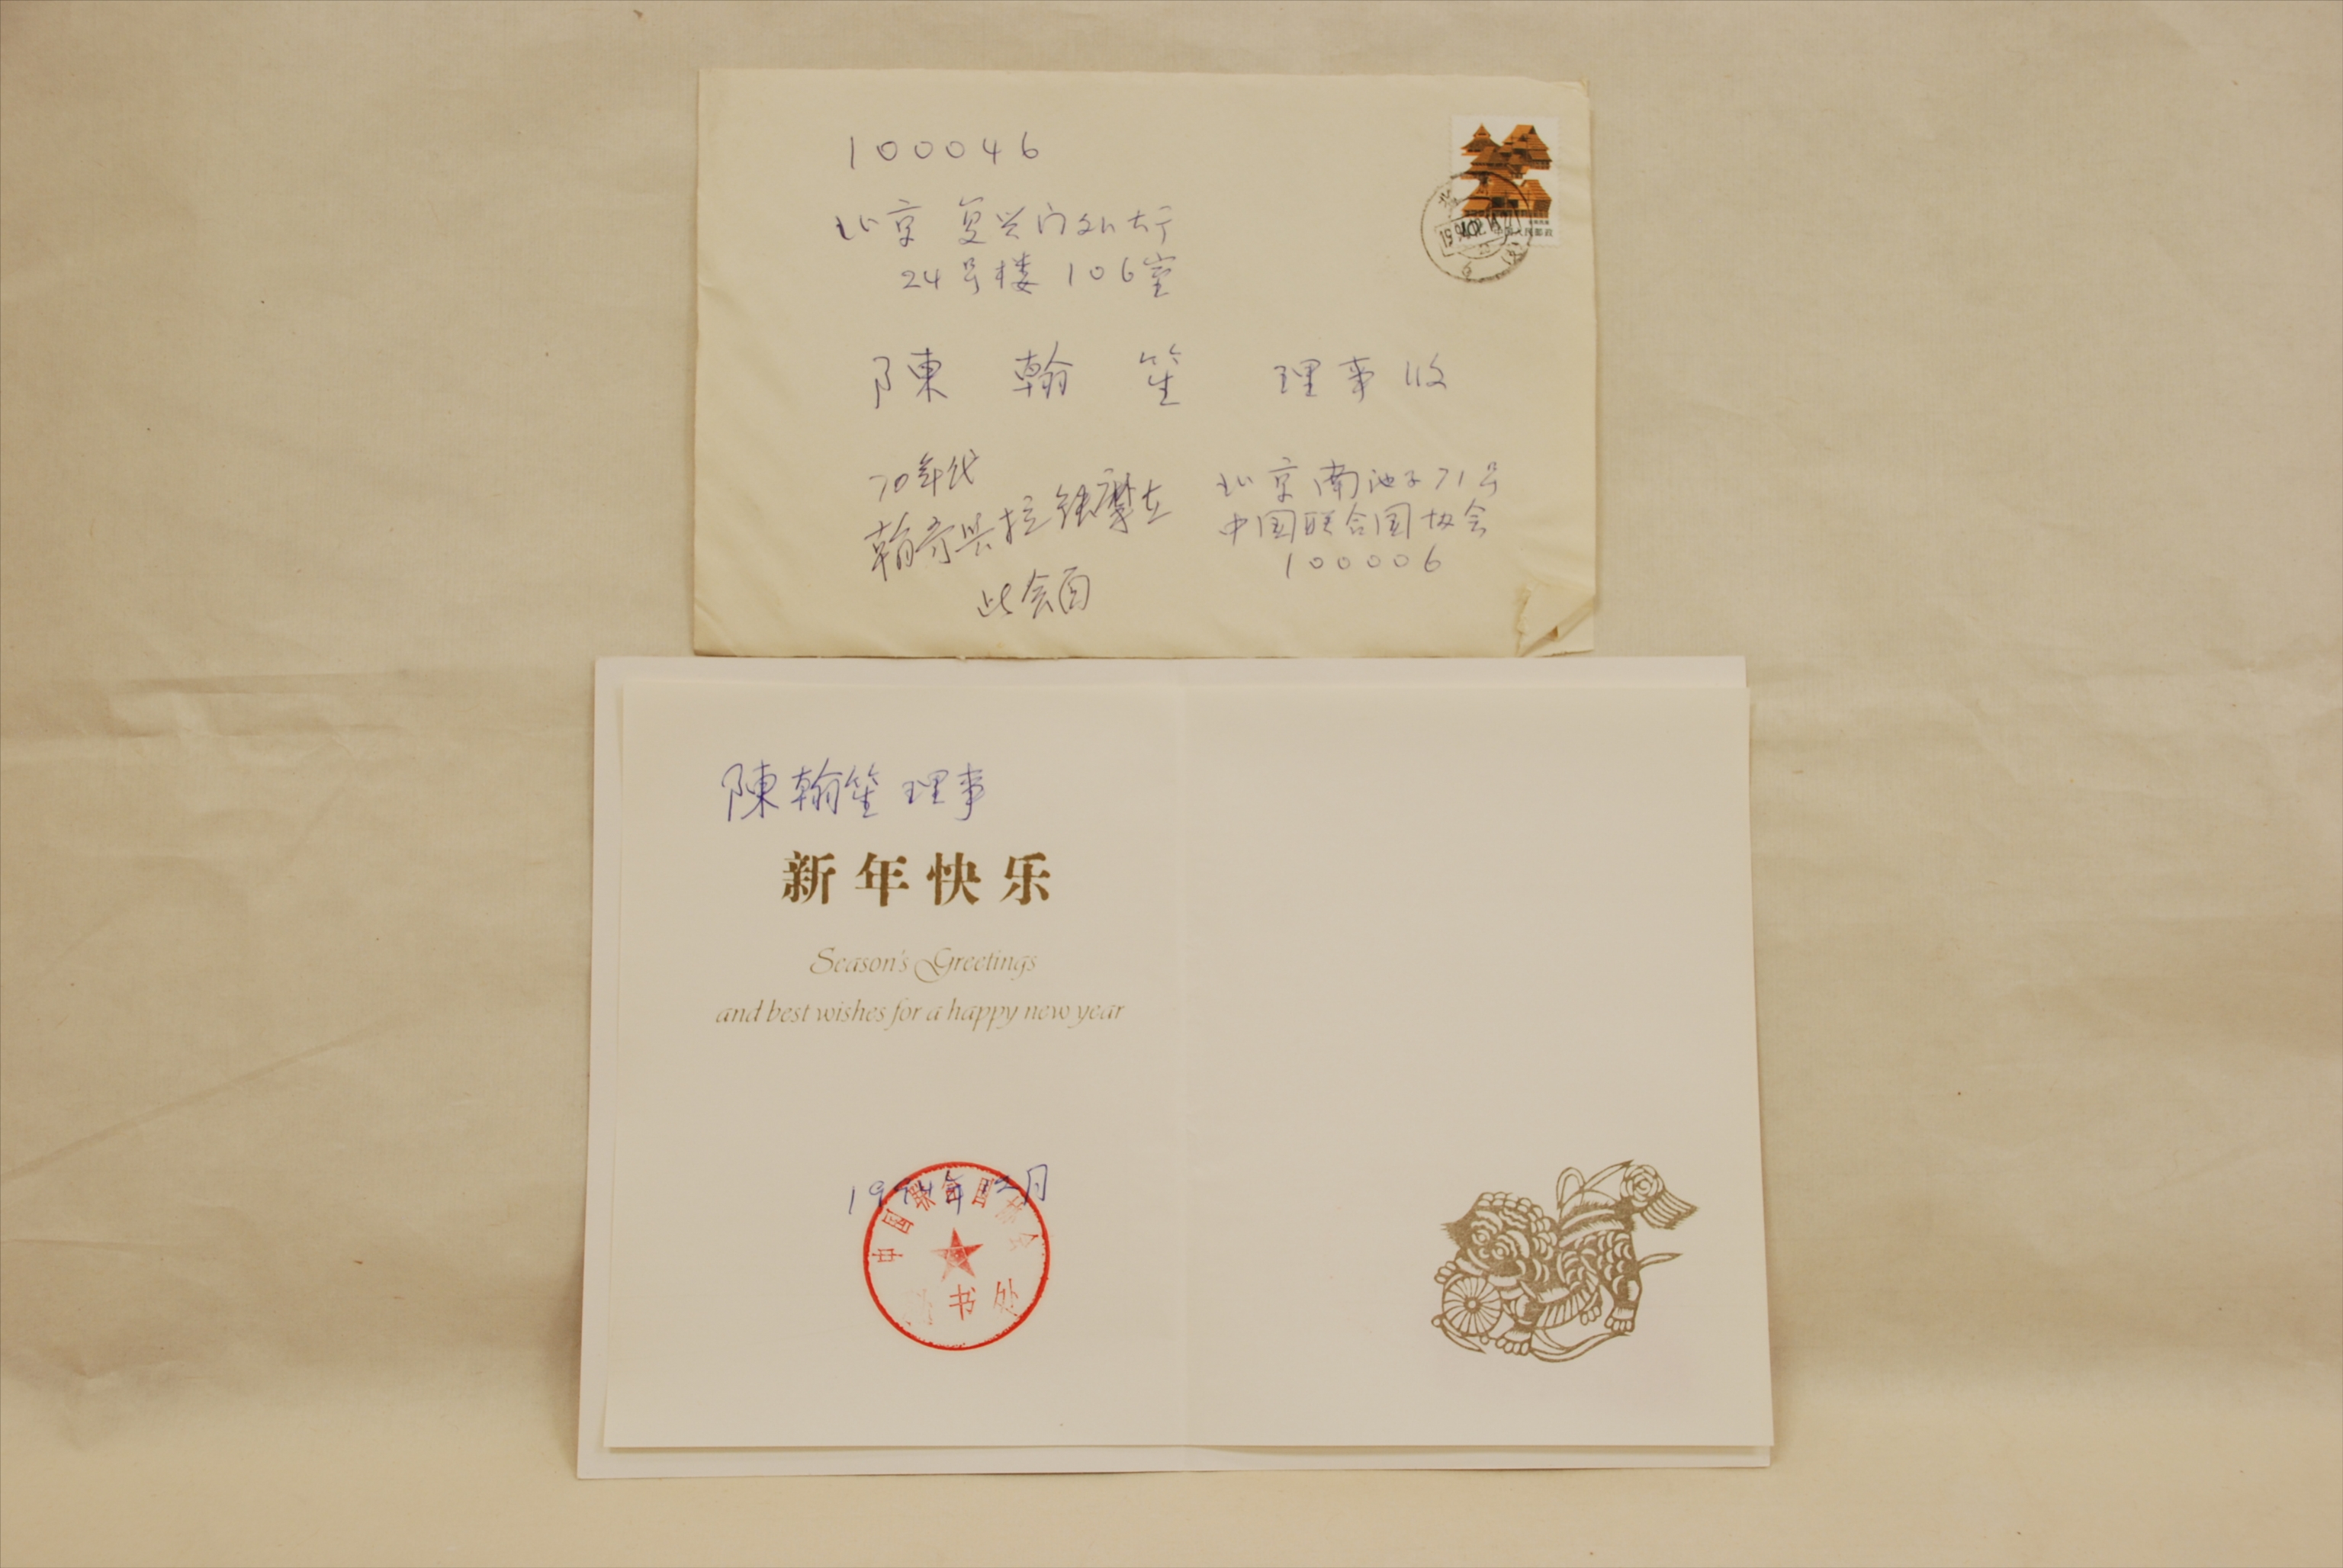 100046
北京 复兴门外大于
24号楼 106室
陳 翰 笙 理事 收
70年代
翰哥与拉铁摩尔
此会面
北京南池子71号
中国联合国协会
100006
人民邮政
陳翰笙 理事
新年快乐
Season's Greetings
and best wishes for a happy new year
1994年12月
中国联合国协会
书处